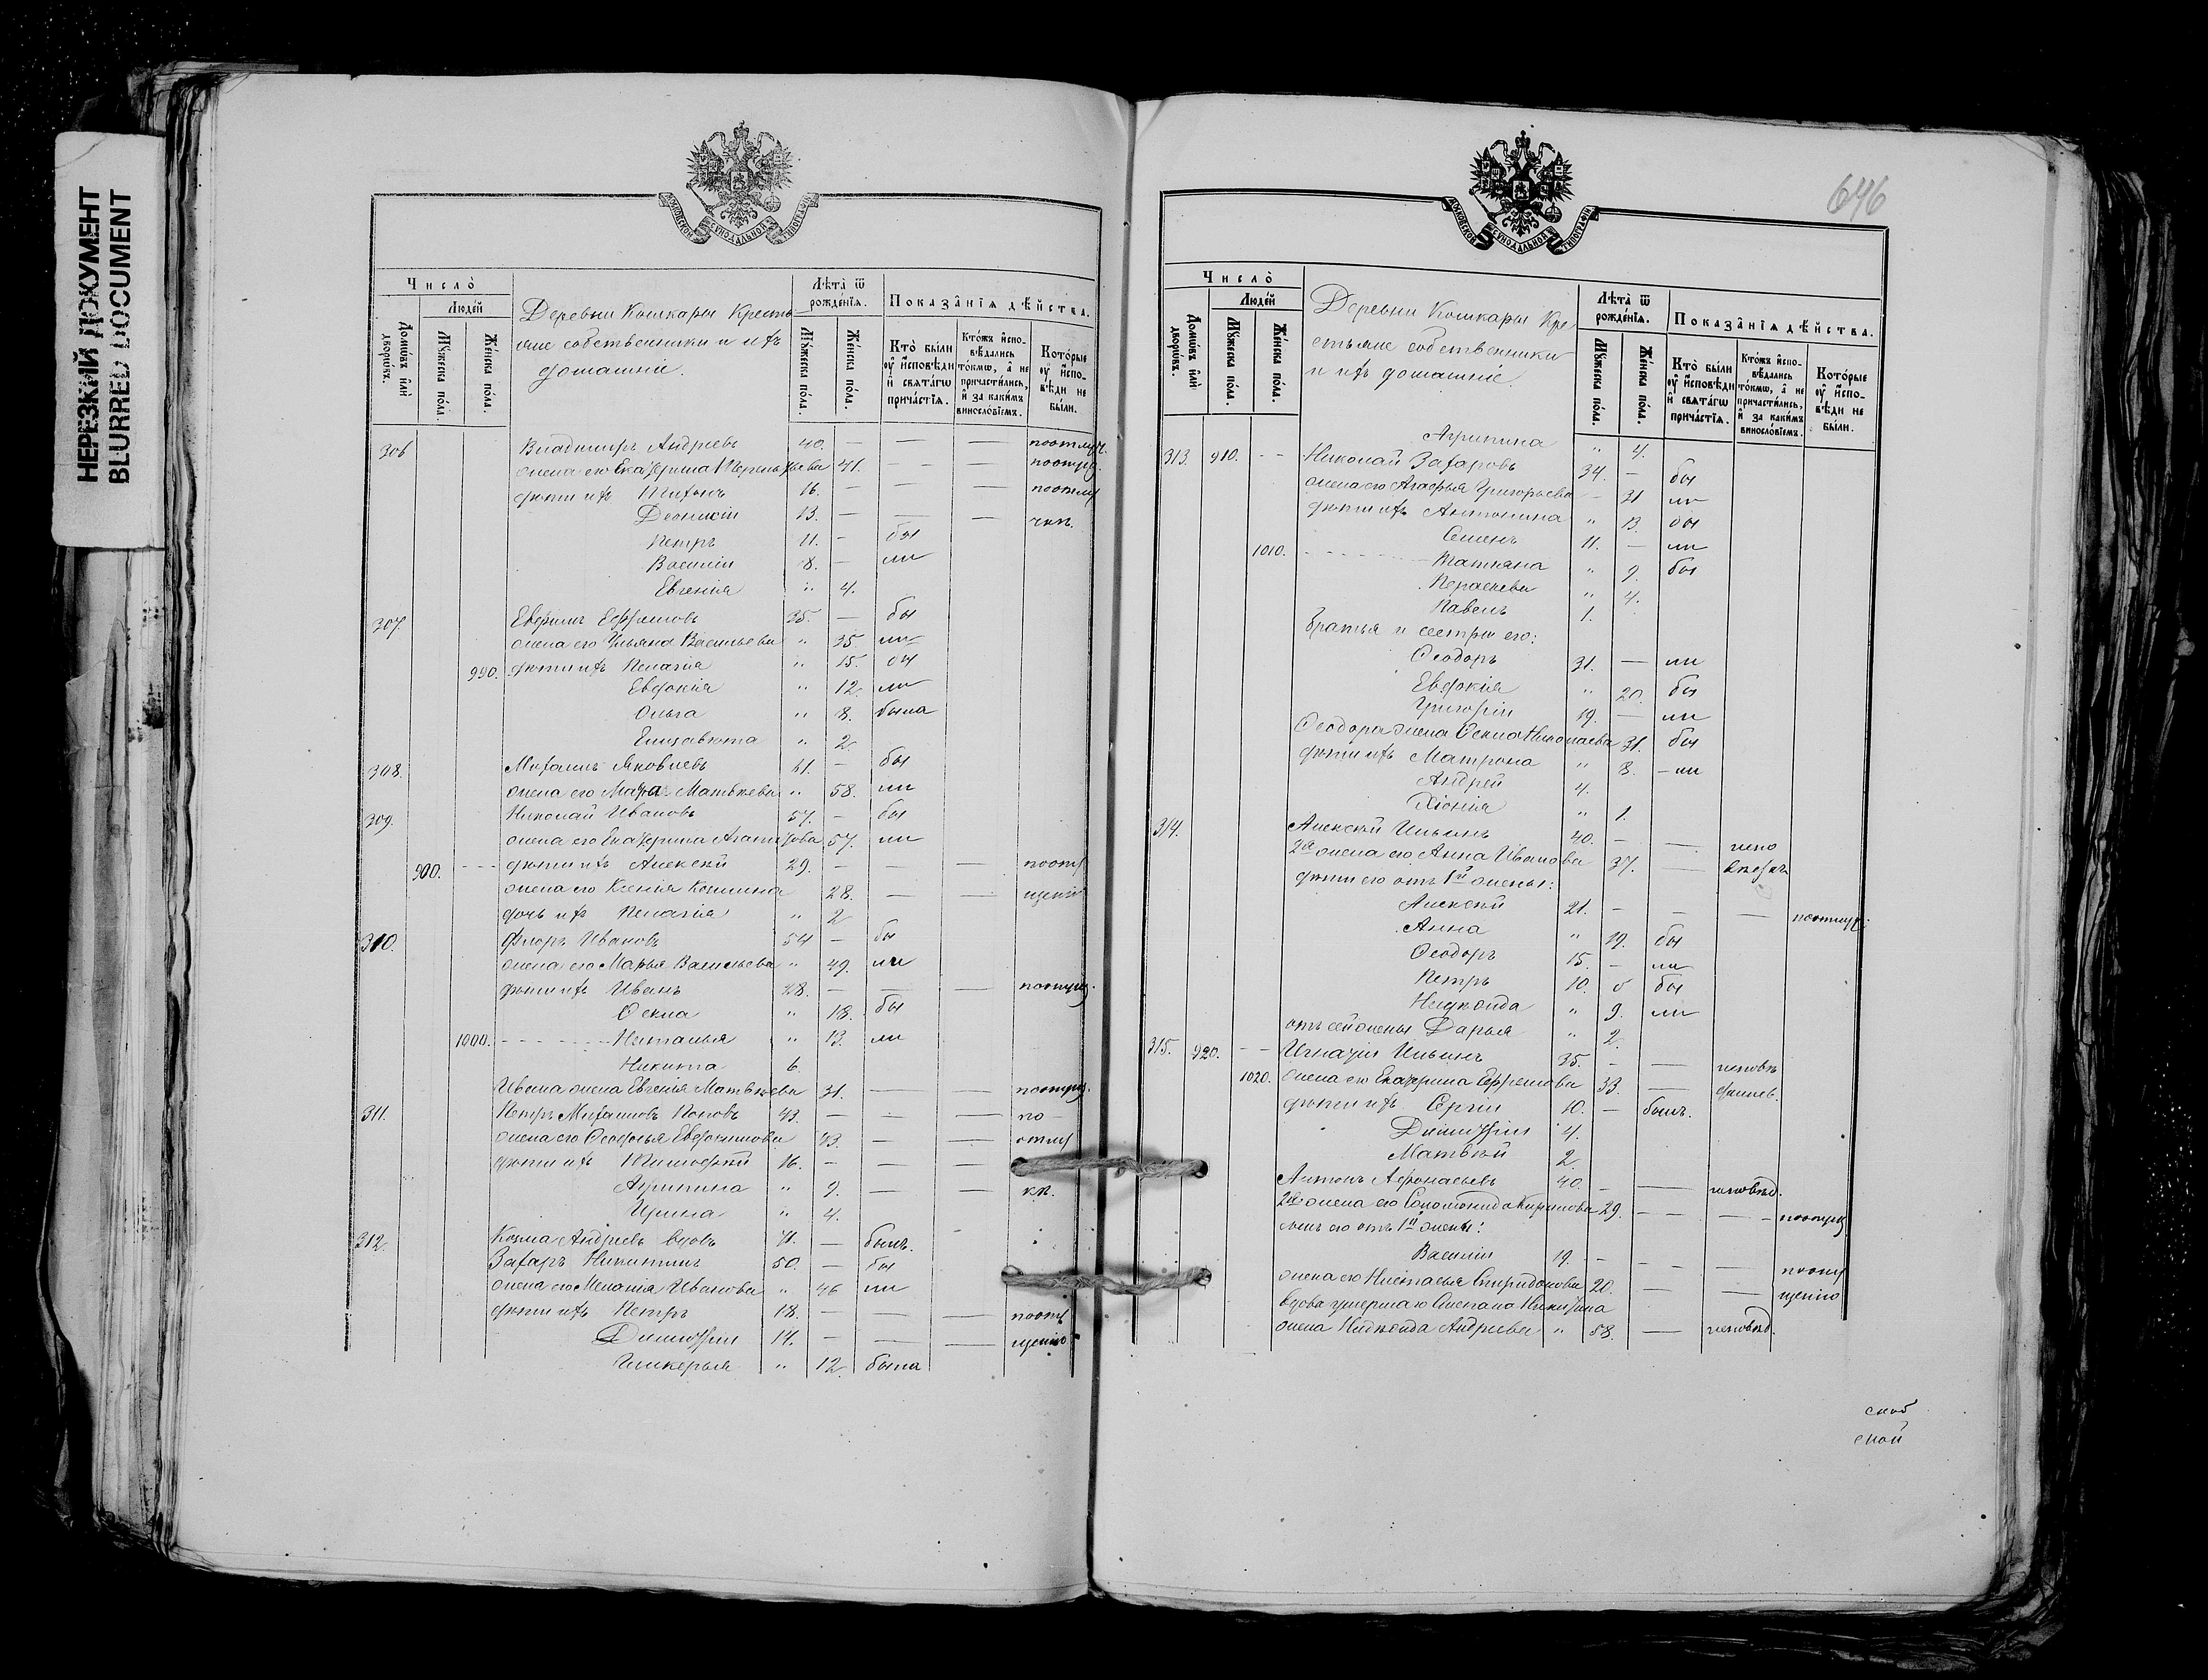 НЕРЕЗКИЙ ДОКУМЕНТ
BLURRED DOCUMENT
МОСКОВСКОЙ СѴНОДАЛЬНОЙ ТИПОГРАФІИ
Число̀
Людей
Домѡвъ или дворѡвъ.
Мꙋжеска пола.
Женска пола.
Деревни Кошкары Кресть
яне собственники и ихъ
домашніе.
Лѣта ѿ рожденїѧ.
Мꙋжеска пола.
Женска пола.
Показанїѧ дѣйства.
Кто были ᲂу исповѣди и свѧтагѡ причастїѧ.
Ктожъ исповѣдались токмѡ, а не причастились, и за какимъ винословїемъ.
Которые ᲂу исповѣди не были.
306 Владиміръ Андреевъ 40. — — — поотлуч.
жена его Екатерина Терентьева 41. — — поотлуч
дѣти ихъ Тихонъ 16. — — — поотлуч
Деонисій 13. — — — чкѣ.
Петръ 11. — бы
Василій 8. — ли
Евгенія " 4.
307. Евфимъ Ефремовъ 35. — бы
жена его Ульяна Васильева " 35. ли
990. дѣти ихъ Пелагія " 15. бы
Евдокія " 12. ли
Ольга " 8. была
Елизавета " 2.
308. Михаилъ Яковлевъ 41. — бы
жена его Марѳа Матвѣева " 58. ли
309. Николай Ивановъ 57. — бы
жена его Екатерина Агапитова 57. ли
900. - - - дѣти ихъ Алексѣй 29. — — — поопу
жена его Ксенія Космина 28. — — щенію
дочь ихъ Пелагія " 2
310. Флоръ Ивановъ 54 — бы
жена его Марья Васильева " 49. ли
дѣти ихъ Иванъ 28. — — — поопущ.
Ѳекла " 18. бы
1000. - - - - - - - Наталья " 13. ли
Никита 6.
Ивана жена Евгенія Матвѣева 31. — — поопущ.
311. Петръ Михаиловъ Поповъ 43. — — — по
жена его Ѳеодосья Евдокимова 43. — — отлу
дѣти ихъ Тимоѳей 16. — — —
Агрипина " 9. — — кѣ.
Ирина " 4.
312. Козма Андреевъ вдовъ 71. — былъ.
Захаръ Никитинъ 50. — бы
жена его Меланія Иванова " 46 ли
дѣти ихъ Петръ 18. — — — поопу
Димитрій 14. — — — щенію
Гликерья " 12 была
646
МОСКОВСКОЙ СѴНОДАЛЬНОЙ ТИПОГРАФІИ
Число̀
Людей
Домѡвъ или дворѡвъ.
Мꙋжеска пола.
Женска пола.
Деревни Кошкары Кре
стьяне собственники
и ихъ домашніе.
Лѣта ѿ рожденїѧ.
Мꙋжеска пола.
Женска пола.
Показанїѧ дѣйства.
Кто были ᲂу исповѣди и свѧтагѡ причастїѧ.
Ктожъ исповѣдались токмѡ, а не причастились, и за какимъ винословїемъ.
Которые ᲂу исповѣди не были.
Агрипина " 4.
313. 910. - - Николай Захаровъ 34. — бы
жена его Агафья Григорьева — 31 ли
дѣти ихъ Антонина " 13. бы
Семенъ 11. — ли
1010. - - - - - - - Татьяна " 9. бы
Параскева " 4.
Павелъ 1.
Братья и сестры его:
Ѳеодоръ 31. — ли
Евдокія " 20. бы
Григорій 19. — ли
Ѳеодора жена Ѳекла Николаева 31. бы
дѣти ихъ Матрона " 8. — ли
Андрей 4.
Хіонія " 1.
314. Алексѣй Ильинъ 40. — — испо
2я жена его Анна Иванова 37. — вѣдкъ
дѣти его отъ 1й жены:
Алексѣй 21. — — — поотлуч.
Анна " 19. бы
Ѳеодоръ 15. — ли
Петръ 10. бы
Надежда " 9. ли
отъ сей жены Дарья " 2.
315. 920. - - Игнатій Ильинъ 35. — — исповѣ
1020. жена его Екатерина Ефремова 33. —
дѣти ихъ Сергій 10. — былъ.
Димитрій 4.
Матвѣй 2
Антонъ Афонасьевъ 40. — — исповѣд.
2я жена его Соломонида Кирилова 29. — — — поопущ
сынъ его отъ 1й жены:
Василій 19. — — — поопу
жена его Настасья Спиридонова 20. — — щенію
вдова умершаго Степана Никитина
жена Надежда Андреева " 58. — исповѣд.